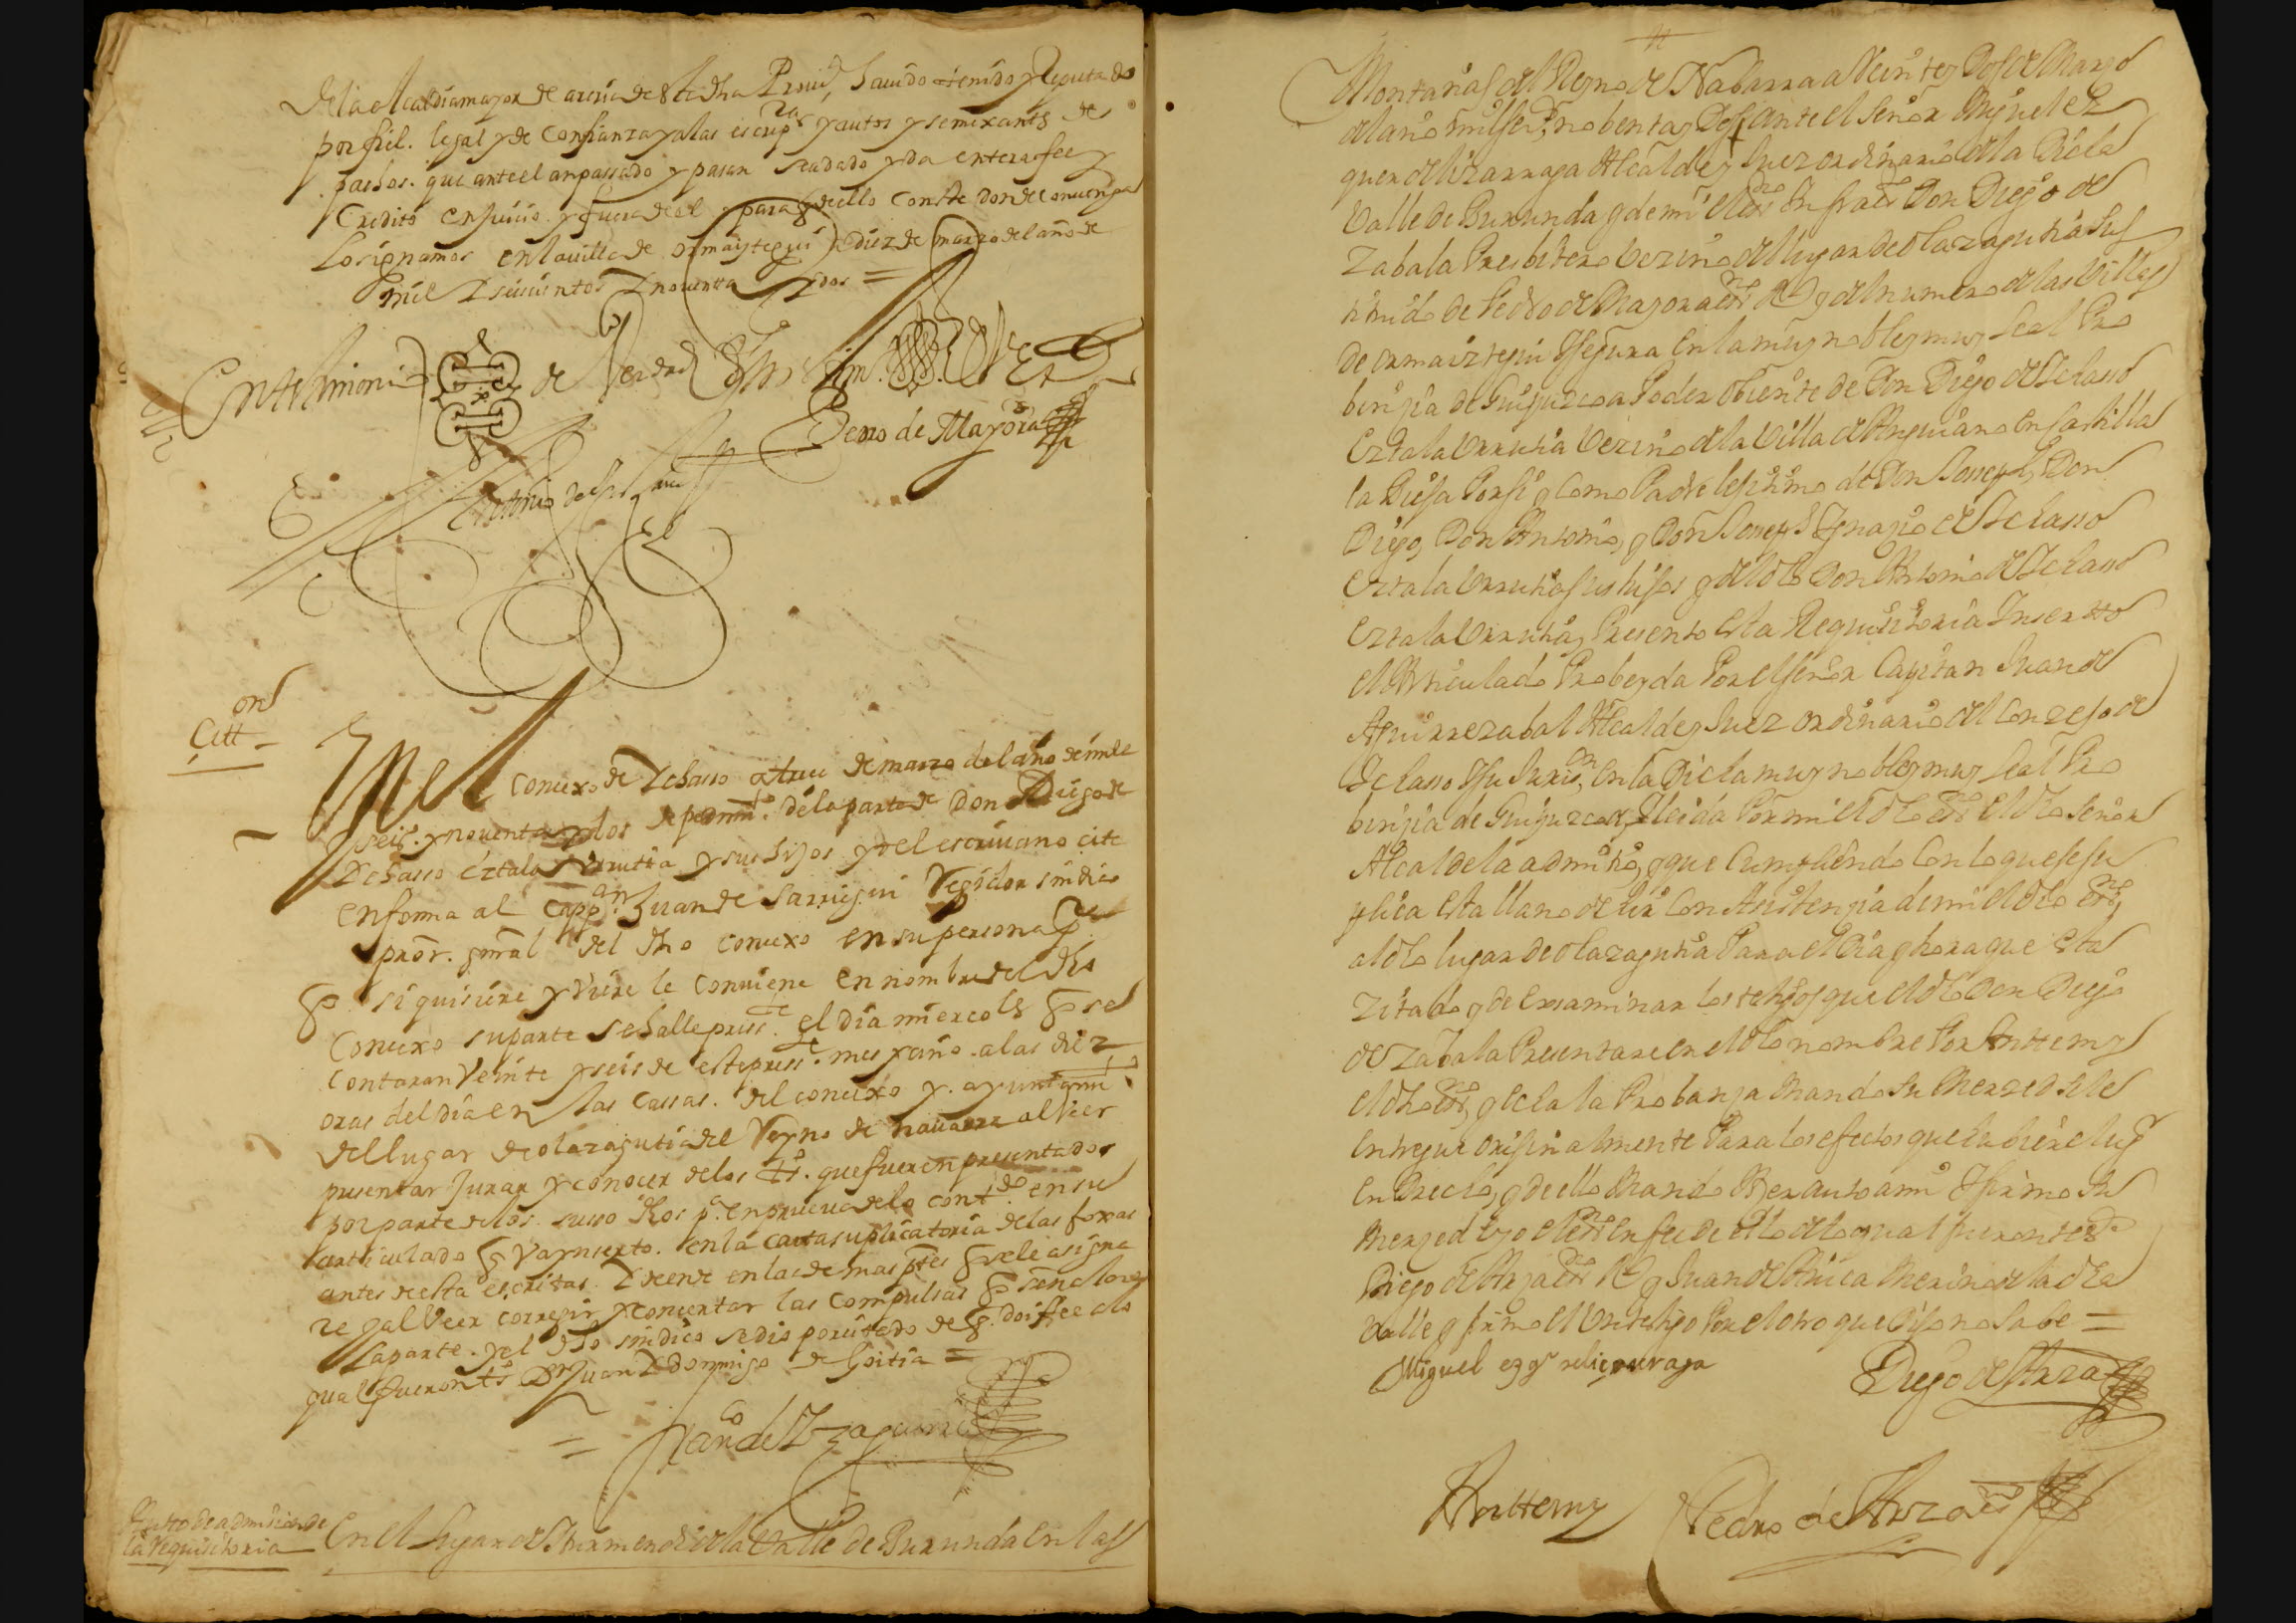 dela Alcaldia mayor de arería desta dha Prouᵃ, hauido tenido y Reputado
por fiel. legal y de Confianza y alas escripʳᵃˢ y autos y semexantes des
pachos. que ante el an passado y pasan se a dado y da entera fee y
Credito en Juicio. y fuera de el y para q de ello Conste donde Conuenga
lo signamos en la uilla de ormayztegui a diez de marzo del año de
mil y seicientos y nouenta y dos =
En testimonio de Verdad
Pedro de Mayora
Antonio de
Cittᵒⁿ
En el conçexo de Ychasso a trece de marzo del año de mill
y seisᵒ y nouenta y dos de pedimᵗᵒ. de la parte de Don Diego de
Ychasso Eztala Vrrutia y sus hijos yo el escriuano cite
en forma al Cappᵃⁿ Juan de Sarriegui Regidor sindico
prõr. gñral del dho conçexo en su persona pᵃ
q si quisiere y viere le conuiene en nombre del dho
Conçexo su parte se halle pressᵗᵉ el dia miercoles q se
contaran Veinte y seis de este pressᵗᵉ mes y año. a las diez
oras del dia en las Cassas. del conçexo y. ayuntamᵗᵒ
del lugar de olazagutia del Reyno de nauarra al Veer
pressentar Jurar y conocer de los tˢ. que fueren presentados
por parte de los susso dhos pᵃ en prueua de lo contᵈᵒ en su
articulado q va ynserto. en la carta suplicatoria de las foxas
antes de esta escritas. Y dende en las demas ptes q se le asigna
re y al Veer corregir y concertar las Compulsas q señalare
la parte. y el dho sindico se dio por citado de q. doi fee a lo
qual fueron tˢ Juan y domingo de Goitia =
Franᶜᵒ de Yzaguirre
Auto de admision de
la requisitoria
En el Lugar de Iturmendi de la Valle de Burunda en las
Montañas del Reyno de Nabarra a Veinte y Dos de Marzo
del año mil seisᵒ nobenta y Dos ante el Señor Miguel Ez
quer de Lizarraga Alcalde y Juez ordinario de la Dicha
Valle de Burunda y de mi el esⁿᵒ Infraᵈᵒ Don Diego de
Zabala Presbitero Vezino del lugar de olazagutia Sus
tituido de Pedro de Mayora esⁿᵒ Rˡ y del numero de las Villas
de ormaiztegui y Segura En la muy noble y muy leal Pro
binçia de Guipuzcoa Poder obiente de Don Diego de Ichasso
Eztala Vrrutia Vezino de la Villa de Anguiano en Castilla
la Vieja Por si y Como Padre lejitimo de Don Joseph, Don
Diego, Don Antonio, y Don Joseph Ignaçio de Ichasso
Eztala Vrrutia sus hijos y del dho Don Antonio de Ichasso
Eztala Vrrutia, Presento esta Requisitoria Inserto
el Articulado Probeyda Por el señor Capitan Juan de
Aguirrezabal Alcalde y Juez ordinario del Conzejo de
Ichasso y su Jurisᵒⁿ, En la Dicha muy noble y muy leal Pro
binçia de Guipuzcoa, y leida Por mi el dho esⁿᵒ el dho señor
Alcalde la admitio, y que Cumpliendo Con lo que se su
plica esta llano de hir Con Asistençia de mi el dho esⁿᵒ
al dho lugar de olazagutia Para el Dia y hora que esta
Zitado y de Examinar los testigos que el dho Don Diego
de Zabala Presentare en el dho nombre Por Ante my
el dho esⁿᵒ, y hecha la Probanza Mando Su Merzed se le
Entregue orijinalmente Para los efectos que hubiere lugʳ
En Drecho, y de ello Mando Hazer auto a mi y firmo Su
Merzed e yo el esⁿᵒ en fee de ello de lo qual fueron testᵒˢ
Diego de Arza esⁿᵒ Rˡ y Juan de Merino de la dha
Valle y firmo el Vn testigo Por el otro que Dijo no Sabe =
Miguel ezqʳ de liçarraga
Diego de Arza
Antte my
Pedro de Arza esⁿᵒ